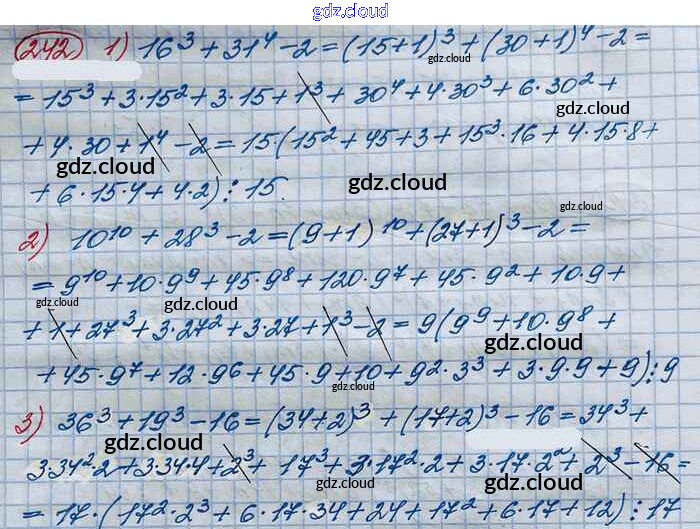 gdz.cloud
242 1) 16³ + 31⁴ - 2 = (15+1)³ + (30+1)⁴ - 2 =
gdz.cloud
= 15³ + 3·15² + 3·15 + 1³ + 30⁴ + 4·30³ + 6·30² +
gdz.cloud
+ 4·30 + 1⁴ - 2 = 15·(15² + 45 + 3 + 15³·16 + 4·15·8 +
gdz.cloud
gdz.cloud
+ 6·15·4 + 4·2) ⋮ 15.
gdz.cloud
2) 10¹⁰ + 28³ - 2 = (9+1)¹⁰ + (27+1)³ - 2 =
= 9¹⁰ + 10·9⁹ + 45·9⁸ + 120·9⁷ + 45·9² + 10·9 +
gdz.cloud
gdz.cloud
+ 1 + 27³ + 3·27² + 3·27 + 1³ - 2 = 9(9⁹ + 10·9⁸ +
gdz.cloud
+ 45·9⁷ + 12·9⁶ + 45·9 + 10 + 9²·3³ + 3·9·9 + 9) ⋮ 9
gdz.cloud
3) 36³ + 19³ - 16 = (34+2)³ + (17+2)³ - 16 = 34³ +
gdz.cloud
3·34²·2 + 3·34·4 + 2³ + 17³ + 3·17²·2 + 3·17·2² + 2³ - 16 =
gdz.cloud
gdz.cloud
= 17·(17²·2³ + 6·17·34 + 24 + 17² + 6·17 + 12) ⋮ 17